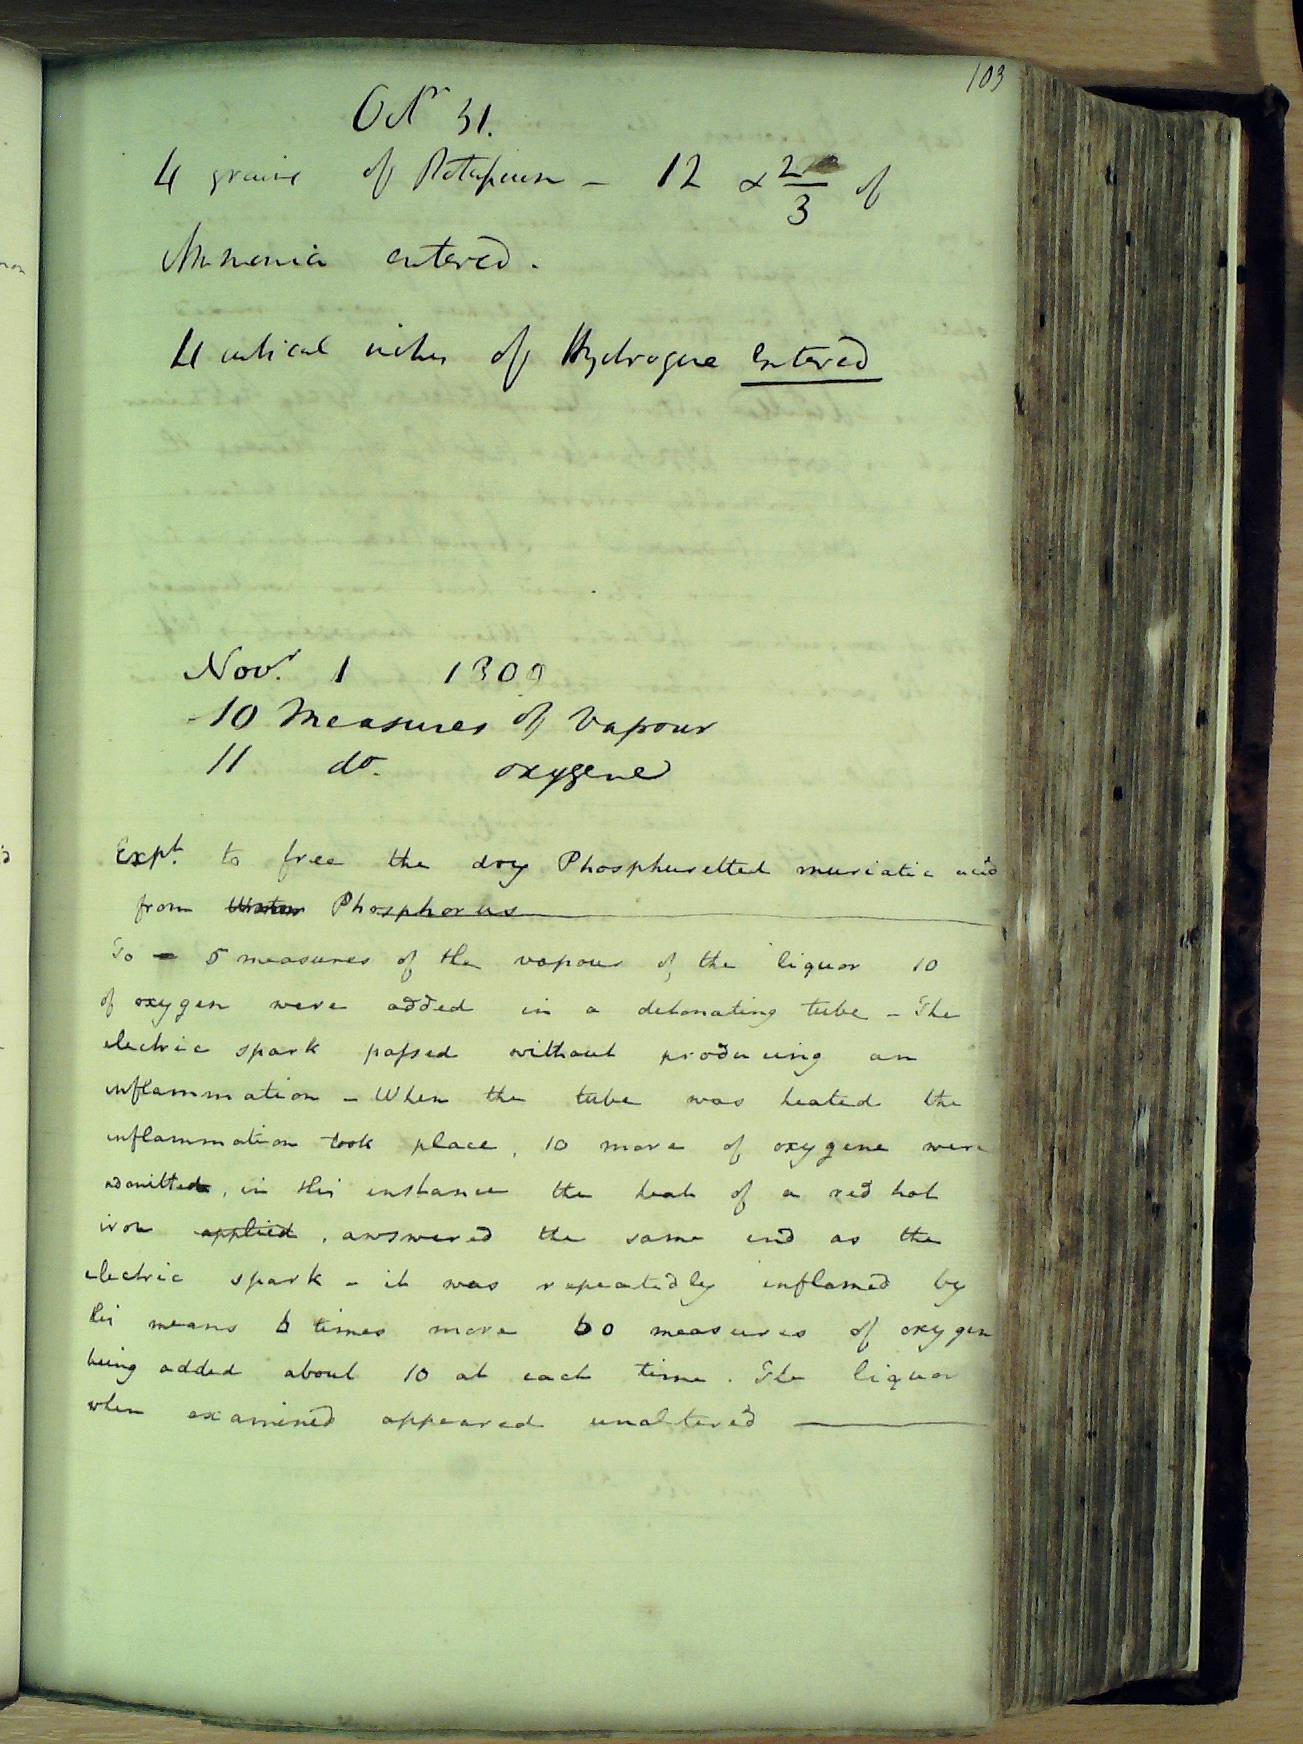 103
Octr 31.
4 grains of Potassium - 12 & 2/3 of
Ammonia entered.
4 cubical inches of Hydrogene entered
Novr. 1 1808
10 Measures of Vapour
11 do. oxygene
Expt. to free the dry Phosphuretted muriatic acid
from Water Phosphorus
To - 5 measures of the vapour of the liquor 10
of oxygen were added in a detonating tube - The
electric spark passed without producing an
inflammation - When the tube was heated the
inflammation took place, 10 more of oxygene were
admitted, in this instance the heat of a red hot
iron applied, answered the same end as the
electric spark - it was repeatedly inflamed by
this means 6 times more 60 measures of oxygen
being added about 10 at each time. The liquor
when examined appeared unaltered